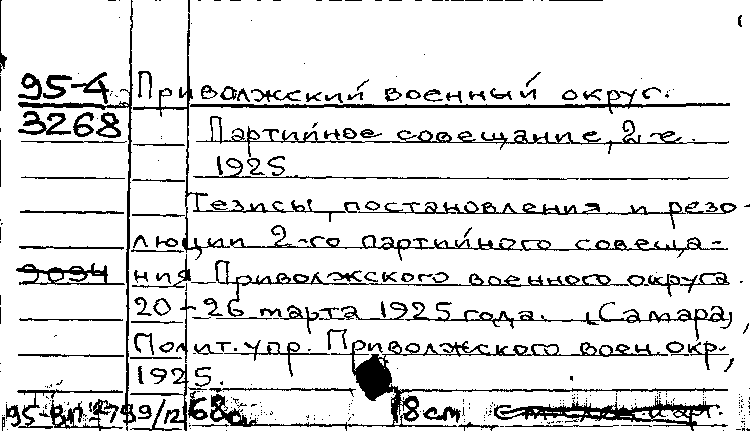 95-4 Приволжский военный округ.
3268 Партийное совещание, 2-е.
1925.
Тезисы, постановления и резо-
люции 2-го партийного совеща-
9094 ния Приволжского военного округа.
20-26 марта 1925 года. [Самара],
Полит. упр. Приволжского воен. окр.,
1925.
68 с. 18 см.